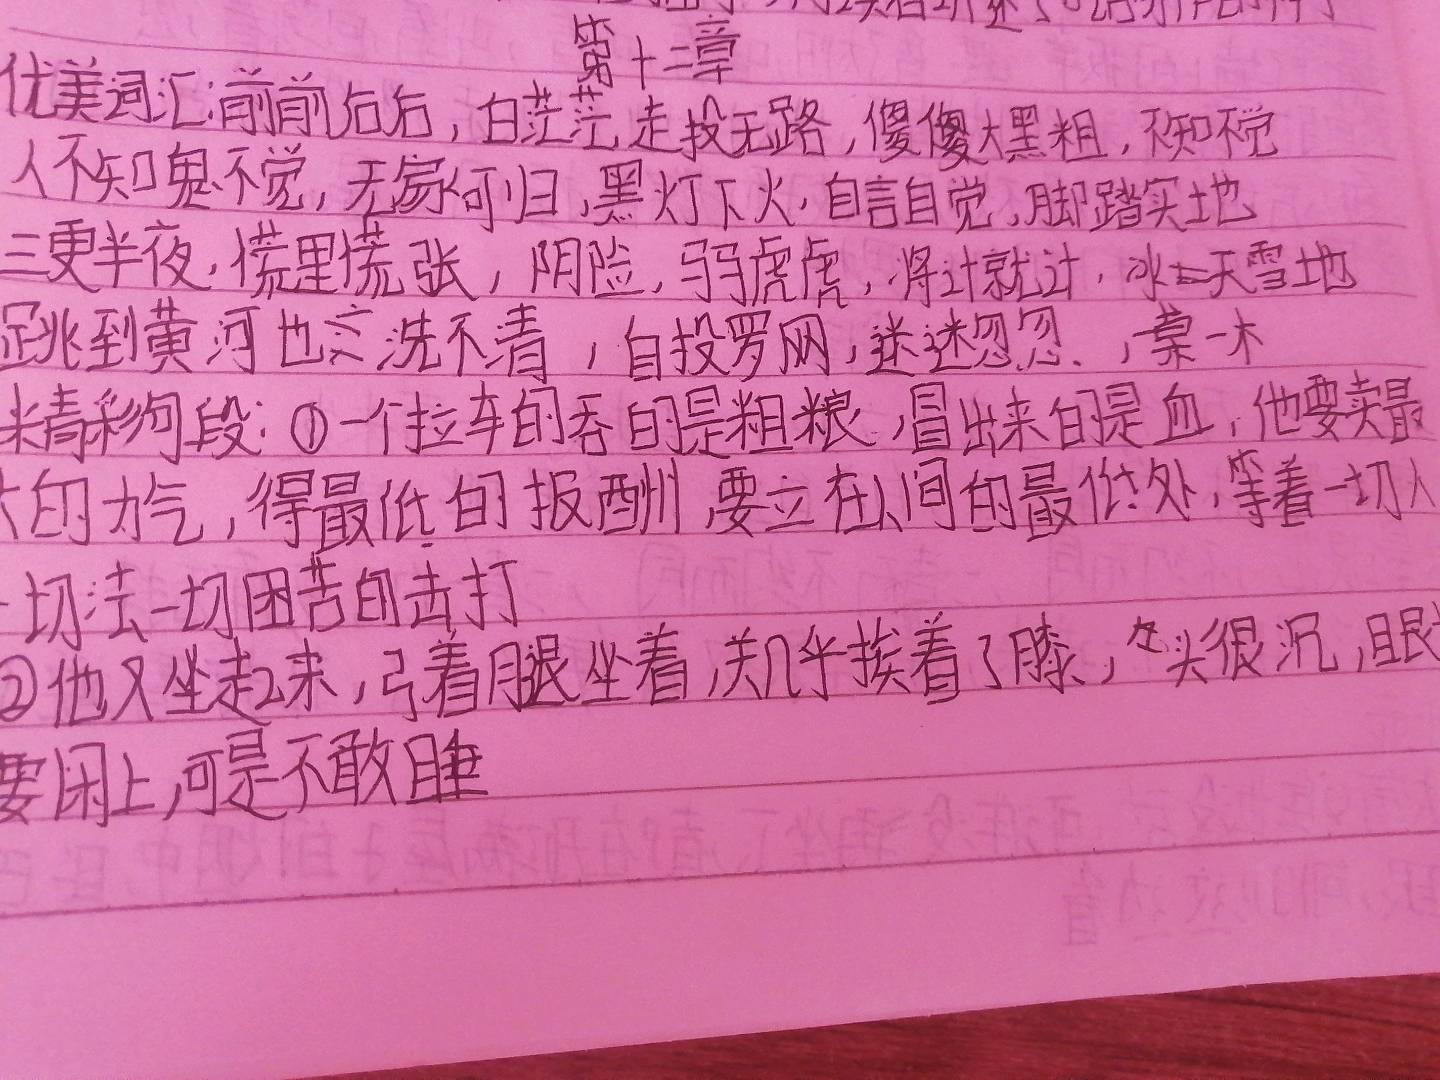 第十二章
优美词汇:前前后后,白茫茫,走投无路,傻傻大黑粗,不知不觉
人不知鬼不觉,无家何归,黑灯下火,自言自觉,脚踏实地
三更半夜,慌里慌张,阴险,弱虎虎,将计就计,冰天雪地
跳到黄河也洗不清,自投罗网,迷迷忽忽,草一木
精彩句段:①一个拉车的吞的是粗粮,冒出来的是血,他要卖最
大的力气,得最低的报酬,要立在人间的最低处,等着一切人
一切法一切困苦的击打
②他又坐起来,引着腿坐着,头几乎挨着了膝,头很沉,眼
要闭上,可是不敢睡